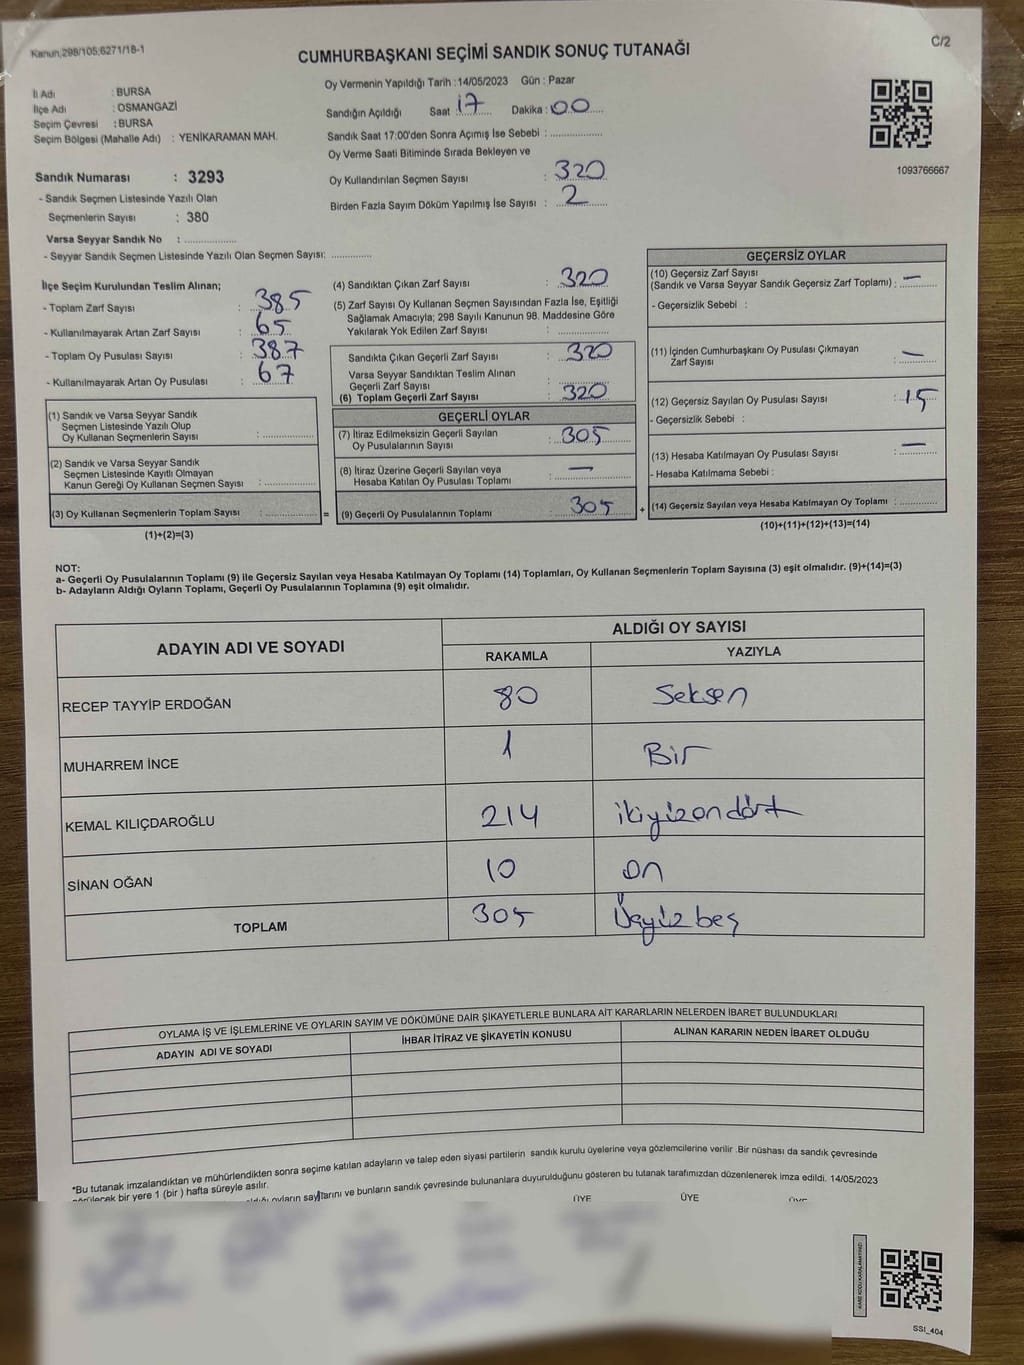 Kanun;298/105;6271/18-1
C/2
CUMHURBAŞKANI SEÇİMİ SANDIK SONUÇ TUTANAĞI
İl Adı : BURSA
İlçe Adı : OSMANGAZİ
Seçim Çevresi : BURSA
Seçim Bölgesi (Mahalle Adı) : YENİKARAMAN MAH.
Sandık Numarası : 3293
- Sandık Seçmen Listesinde Yazılı Olan
Seçmenlerin Sayısı : 380
Varsa Seyyar Sandık No : ..................
- Seyyar Sandık Seçmen Listesinde Yazılı Olan Seçmen Sayısı: ..............
Oy Vermenin Yapıldığı Tarih : 14/05/2023 Gün : Pazar
Sandığın Açıldığı Saat 17 Dakika : 00
Sandık Saat 17:00'den Sonra Açımış İse Sebebi : ..................
Oy Verme Saati Bitiminde Sırada Bekleyen ve
Oy Kullandırılan Seçmen Sayısı : 320
Birden Fazla Sayım Döküm Yapılmış İse Sayısı : 2
1093766667
İlçe Seçim Kurulundan Teslim Alınan;
- Toplam Zarf Sayısı : 385
- Kullanılmayarak Artan Zarf Sayısı : 65
- Toplam Oy Pusulası Sayısı : 387
- Kullanılmayarak Artan Oy Pusulası : 67
(1) Sandık ve Varsa Seyyar Sandık
Seçmen Listesinde Yazılı Olup
Oy Kullanan Seçmenlerin Sayısı : ..................
(2) Sandık ve Varsa Seyyar Sandık
Seçmen Listesinde Kayıtlı Olmayan
Kanun Gereği Oy Kullanan Seçmen Sayısı : ..................
(3) Oy Kullanan Seçmenlerin Toplam Sayısı : .................. =
(1)+(2)=(3)
(4) Sandıktan Çıkan Zarf Sayısı : 320
(5) Zarf Sayısı Oy Kullanan Seçmen Sayısından Fazla İse, Eşitliği
Sağlamak Amacıyla; 298 Sayılı Kanunun 98. Maddesine Göre
Yakılarak Yok Edilen Zarf Sayısı : ..................
Sandıkta Çıkan Geçerli Zarf Sayısı : 320
Varsa Seyyar Sandıktan Teslim Alınan
Geçerli Zarf Sayısı : ..................
(6) Toplam Geçerli Zarf Sayısı : 320
GEÇERLİ OYLAR
(7) İtiraz Edilmeksizin Geçerli Sayılan
Oy Pusulalarının Sayısı : 305
(8) İtiraz Üzerine Geçerli Sayılan veya
Hesaba Katılan Oy Pusulası Toplamı : —
(9) Geçerli Oy Pusulalarının Toplamı : 305 +
GEÇERSİZ OYLAR
(10) Geçersiz Zarf Sayısı
(Sandık ve Varsa Seyyar Sandık Geçersiz Zarf Toplamı) : —
- Geçersizlik Sebebi :
(11) İçinden Cumhurbaşkanı Oy Pusulası Çıkmayan
Zarf Sayısı : —
(12) Geçersiz Sayılan Oy Pusulası Sayısı : 15
- Geçersizlik Sebebi :
(13) Hesaba Katılmayan Oy Pusulası Sayısı : —
- Hesaba Katılmama Sebebi :
(14) Geçersiz Sayılan veya Hesaba Katılmayan Oy Toplamı : ..............
(10)+(11)+(12)+(13)=(14)
NOT:
a- Geçerli Oy Pusulalarının Toplamı (9) ile Geçersiz Sayılan veya Hesaba Katılmayan Oy Toplamı (14) Toplamları, Oy Kullanan Seçmenlerin Toplam Sayısına (3) eşit olmalıdır. (9)+(14)=(3)
b- Adayların Aldığı Oyların Toplamı, Geçerli Oy Pusulalarının Toplamına (9) eşit olmalıdır.
ADAYIN ADI VE SOYADI ALDIĞI OY SAYISI
RAKAMLA YAZIYLA
RECEP TAYYİP ERDOĞAN 80 Seksen
MUHARREM İNCE 1 Bir
KEMAL KILIÇDAROĞLU 214 ikiyüzondört
SİNAN OĞAN 10 on
TOPLAM 305 Üçyüz beş
OYLAMA İŞ VE İŞLEMLERİNE VE OYLARIN SAYIM VE DÖKÜMÜNE DAİR ŞİKAYETLERLE BUNLARA AİT KARARLARIN NELERDEN İBARET BULUNDUKLARI
ADAYIN ADI VE SOYADI İHBAR İTİRAZ VE ŞİKAYETİN KONUSU ALINAN KARARIN NEDEN İBARET OLDUĞU
*Bu tutanak imzalandıktan ve mühürlendikten sonra seçime katılan adayların ve talep eden siyasi partilerin sandık kurulu üyelerine veya gözlemcilerine verilir .Bir nüshası da sandık çevresinde
görülecek bir yere 1 (bir ) hafta süreyle asılır.
oyların sayılarını ve bunların sandık çevresinde bulunanlara duyurulduğunu gösteren bu tutanak tarafımızdan düzenlenerek imza edildi. 14/05/2023
ÜYE ÜYE ÜYE
SSI_404